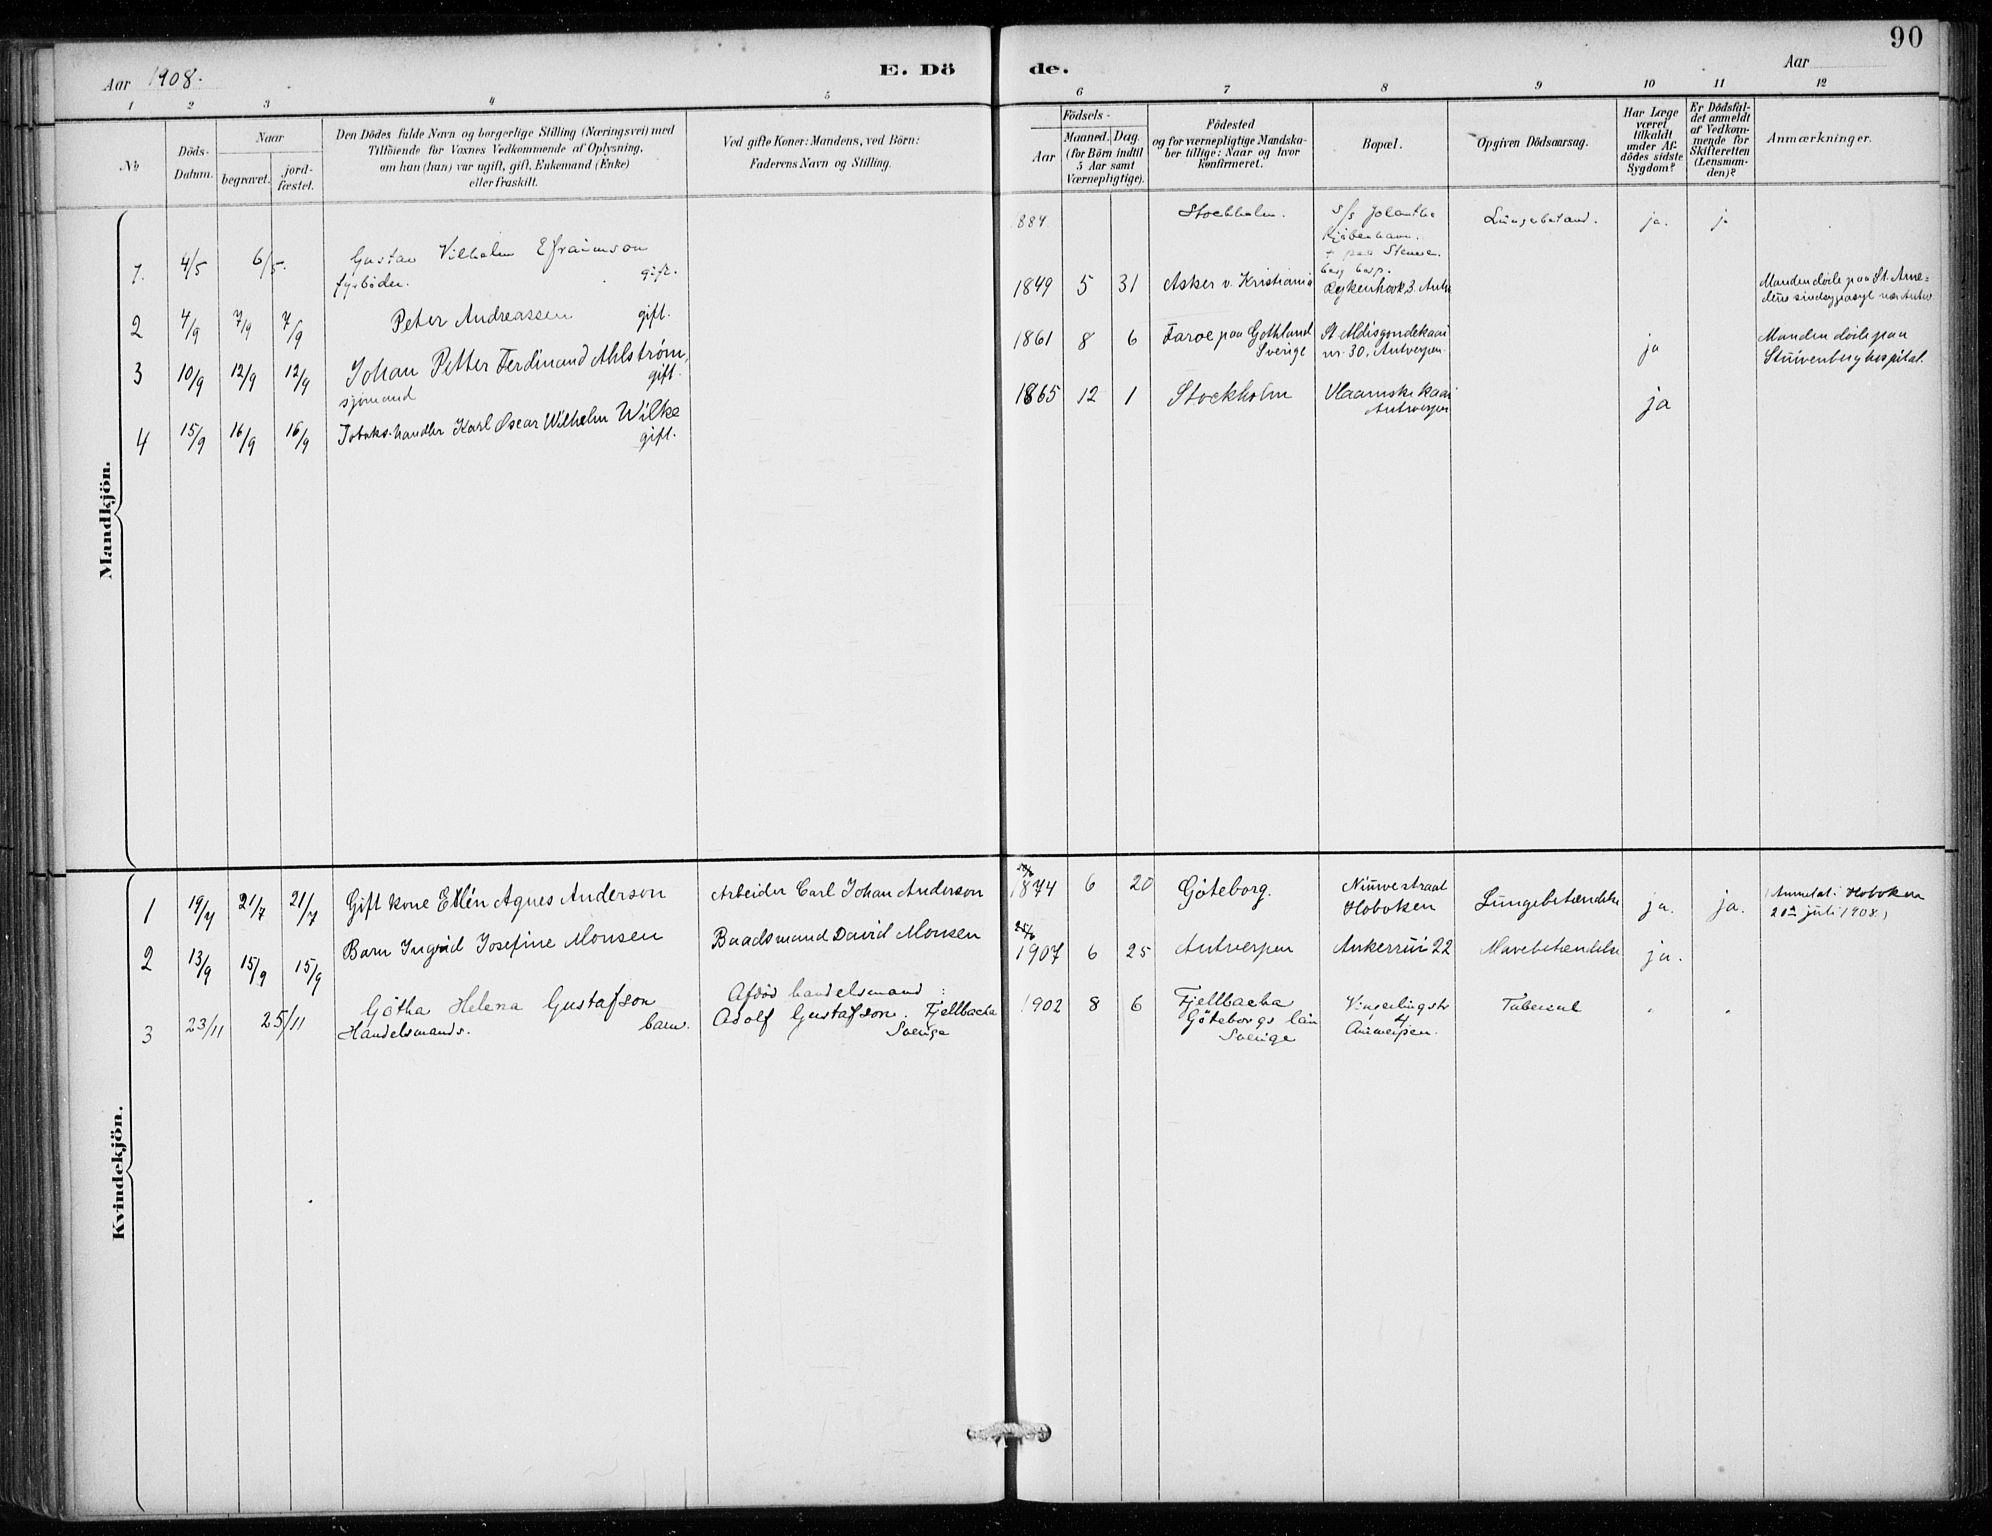 90
Aar 1908.
E. Dö de.
Aar
1 2 3 4 5 6 7 8 9 10 11 12
No
Döds-
Datum.
Naar
begravet.
jord-
fæstet.
Den Dödes fulde Navn og borgerlige Stilling (Næringsvei) med
Tilföiende for Voxnes Vedkommende af Oplysning,
om han (hun) var ugift, gift, Enkemand (Enke)
eller fraskilt.
Ved gifte Koner: Mandens, ved Börn:
Faderens Navn og Stilling.
Födsels-
Aar
Maaned. Dag.
(for Börn indtil
5 Aar samt
Værnepligtige).
Födested
og for værnepligtige Mandska-
ber tillige: Naar og hvor
konfirmeret.
Bopæl.
Opgiven Dödsaarsag.
Har Læge
været
tilkaldt
under Af-
dödes sidste
Sygdom?
Er Dödsfal-
det anmeldt
af Vedkom-
mende for
Skifteretten
(Lensman-
den)?
Anmærkninger.
Mandkjön.
1. 4/5 6/5. Gustav Vilhelm Efraimson
fyrböder. gift.
884 Stockholm. S/S Jolantha
Kjöbenhavn.
Lungebetænd. ja. ja
2 4/9 7/9 7/9 Peter Andreassen gift.
1849 5 31 Asker v. Kristiania Rejkenhoek 3. Antw
Manden döde paa St. Ame-
3 10/9 12/9 12/9 Johan Petter Ferdinand Ahlström,
sjömand gift.
1861 8 6 Faroe paa Gothland
Sverige
St Aldigondekaai
nr. 30. Antverpen
ja
Manden döde paa
Stuivenberg hospital.
4 15/9 16/9 16/9 Tobakshandler Karl Oscar Wilhelm Wilke
gift.
1865 12 1 Stockholm Vlaamske Kaai
Antwerpen
ja
Kvindekjön.
1 19/7 21/7 21/7 Gift kone Ellén Agnes Anderson Arbeider Carl Johan Anderson
1874 6 20 Göteborg. Niuwe straat
Hoboken
Lungebetændelse ja. ja. (Anmeldt i Hoboken
20de juli 1908.)
2 13/9 15/9 15/9 Barn Ingrid Josefine Monsen Baadsmand David Monsen
25/6
1907 6 25 Antverpen Ankerrui 22 Mavebetændelse ja.
3 23/11 25/11 Götha Helena Gustafson
Handelsmands. barn.
Afdöd handelsmand
Adolf Gustafson. Fjellbacka
Sverige
1902 8 6 Fjellbacka
Göteborgs län
Sverige
Vingerlingstr
4
Antwerpen.
Tuberkul